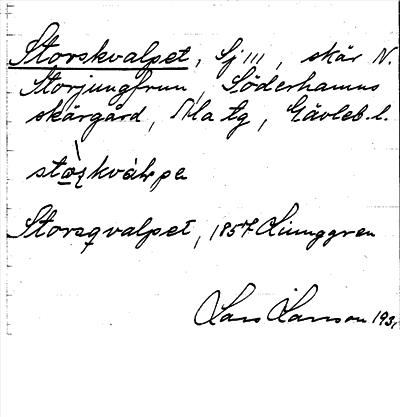 Storskvalpet, Sj III, skär N.
Storjungfrun, Söderhamns
skärgård, Ala tg, Gävleb. l.
Storsqvalpet, 1857 Ljunggren
Lars Larsson 193